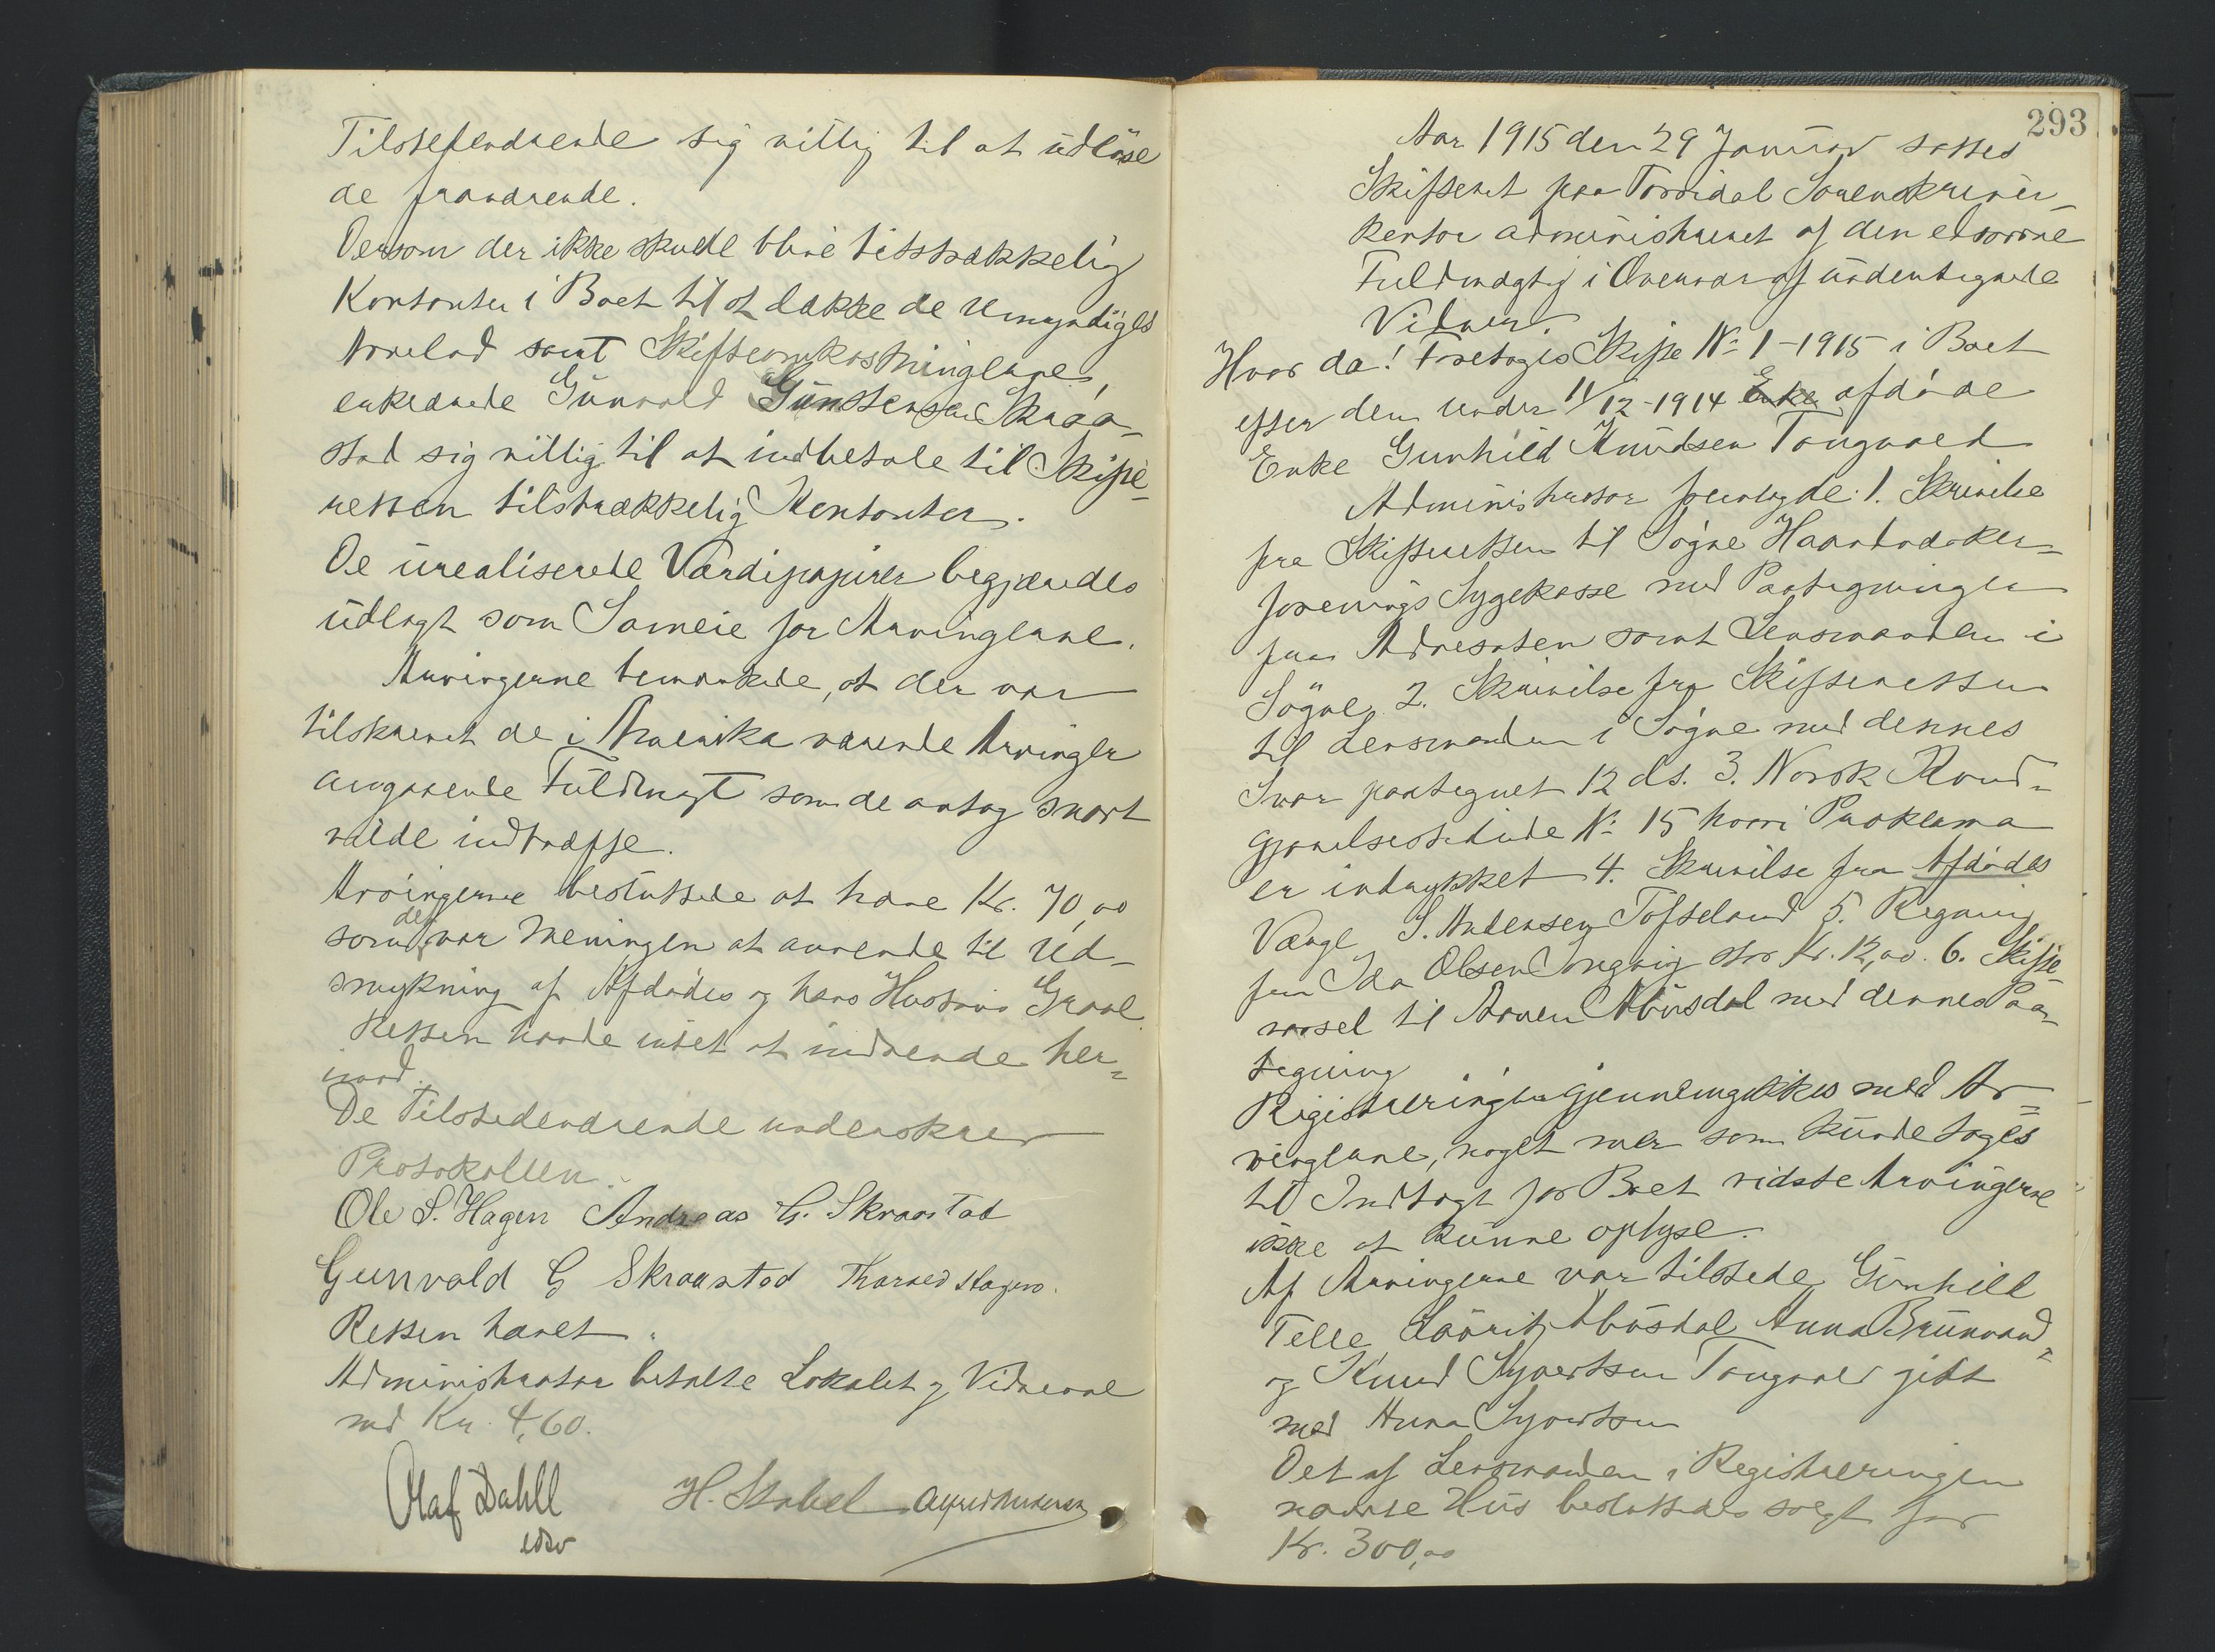 Tilstedeværende sig villig til at udløse
de fraværende.
Dersom der ikke skulde blive tilstrækkelig
Kontanter i Boet til at dække de Umyndiges
Arvelod samt Skifteomkostningerne,
erklærede Gunvald Gunstensen Skraa-
stad sig villig til at indbetale til Skifte-
retten tilstrækkelig Kontanter.
De urealiserede Værdipapirer begjæredes
udlagt som Sameie for Arvingerne.
Arvingerne bemærkede, at der var
tilskrevet de i Amerika værende Arvinger
angaaende Fuldmagt som de antog snart
vilde indtræffe.
Arvingerne besluttede at have Kr. 70,00
som det var Meningen at anvende til Ud-
smykning af Afdødes og hans Hustrus Grav.
Retten havde intet at indvende her-
imod.
De Tilstedeværende underskrev
Protokollen.
Ole S. Hagen Andreas G. Skraastad
Gunvald G Skraastad Tharald Hagen.
Retten hævet.
Administrator betalte Lokalet og Vidnerne
med Kr. 4,60.
Olaf Dahll H. Stabel Alfred Andersen
edsv
293
Aar 1915 den 29 Januar sattes
Skifteret paa Torridal Sorenskriver-
kontor administreret af den edsvorne
Fuldmægtig i Overvær af undertegnede
Vidner.
Hvor da! Foretoges Skifte No 1 - 1915 i Boet
efter den under 11/12-1914 Enke afdøde
Enke Gunhild Knudsen Tangvald
Administrator fremlagde: 1. Skrivelse
fra Skifteretten til Søgne Haandværker-
forenings Sygekasse med Paategninger
fra Adressaten samt Lensmanden i
Søgne, 2. Skrivelse fra Skifteretten
til Lensmanden i Søgne med dennes
Svar paategnet 12 ds. 3. Norsk Kund-
gjørelsestidende No 15 hvori Proklama
er indrykket 4. Skrivelse fra Afdødes
Værge S. Andersen Tofteland 5. Regning
fra Ida Olsen Langvig stor Kr. 12,00. 6. Skifte-
varsel til Aanen Abusdal med dennes Paa-
tegning
Registreringen gjennemgikkes med Ar-
vingerne, noget mer som kunde toges
til Indtægt for Boet vidste Arvingerne
ikke at kunne oplyse.
Af Arvingerne var tilstede Gunhild
Telle, Lauritz Abusdal Anna Brunvand-
og Knud Syvertsen Tangvald gift
med Anna Syvertsen
Det af Lensmanden i Registreringen
nævnte Hus besluttedes solgt for
Kr. 300,00